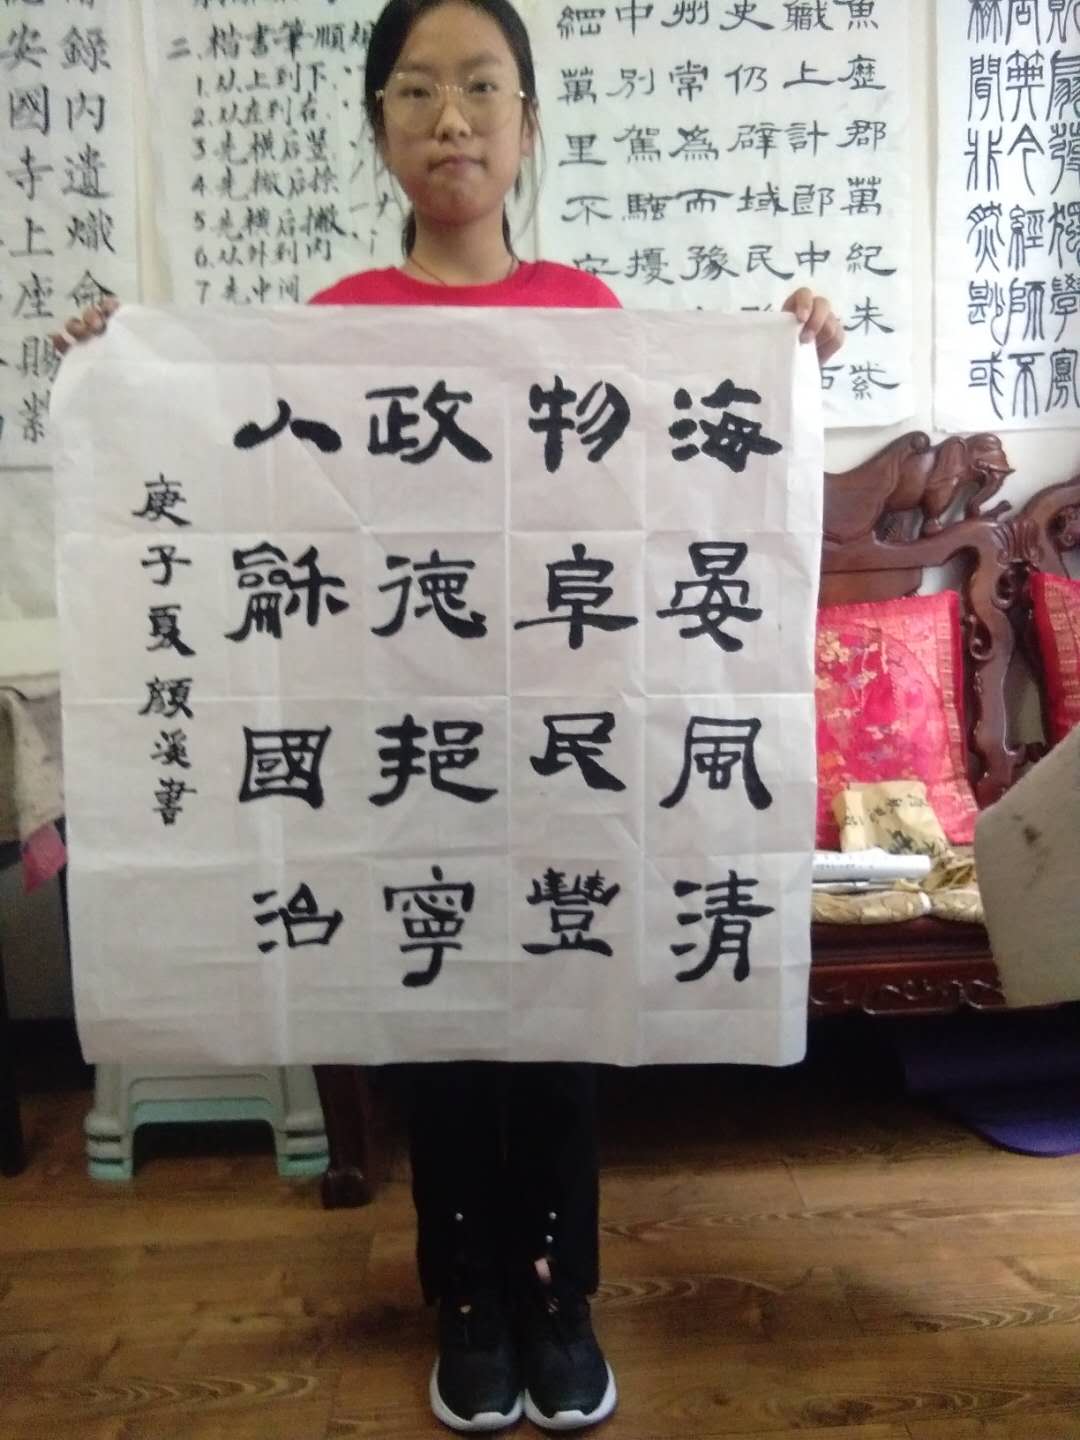 海晏風清
物阜民豐
政德邦寧
人龢國治
庚子夏顏溪書
魚歷郡萬紀朱紫
職上計郎中
史仍辟域民
州常為而豫
中別駕驅擾
細萬里不安
二.楷書筆順
1.从上到下.
2.从左到右.
3先横后竖.
4.先撇后捺
5.先横后撇
6.从外到内
7先中间
錄內遺熾命
安國寺上座賜紫